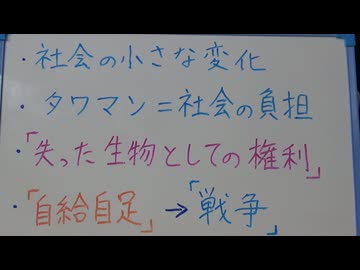 ・社会の小さな変化
・タワマン＝社会の負担
・「失った生物としての権利」
・「自給自足」→「戦争」